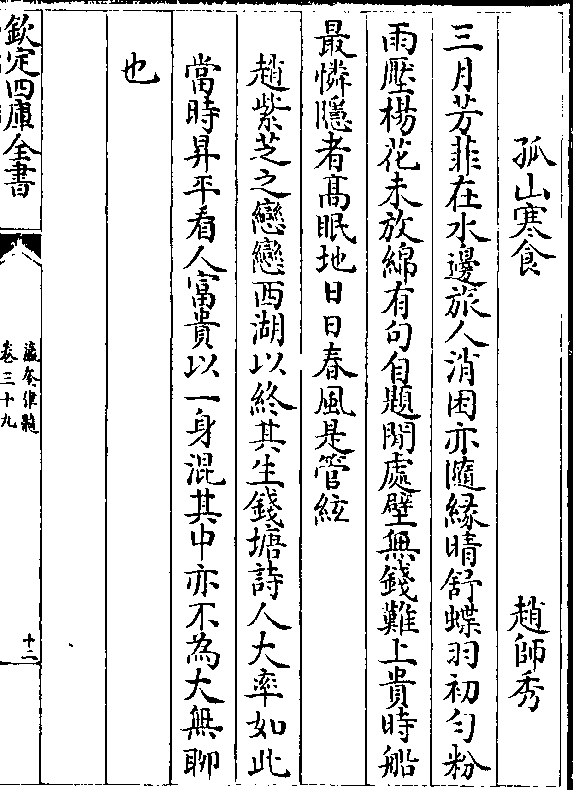 孤山寒食　趙師秀
三月芳菲在水邊旅人消困亦隨緣晴舒蝶羽初匀粉
雨壓楊花未放綿有句自題閒處壁無錢難上貴時船
最憐隱者髙眠地日日春風是管絃
趙紫芝之戀戀西湖以終其生錢塘詩人大率如此
當時昇平看人富貴以一身混其中亦不為大無聊
也
欽定四庫全書
瀛奎律髓
卷三十九
十二